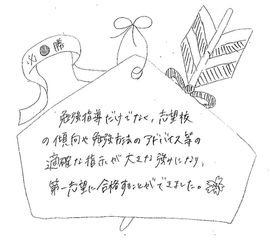 必勝
勉強指導だけでなく、志望校
の傾向や勉強方法のアドバイス等の
適確な指示が大きな強みになり、
第一志望に合格することができました。